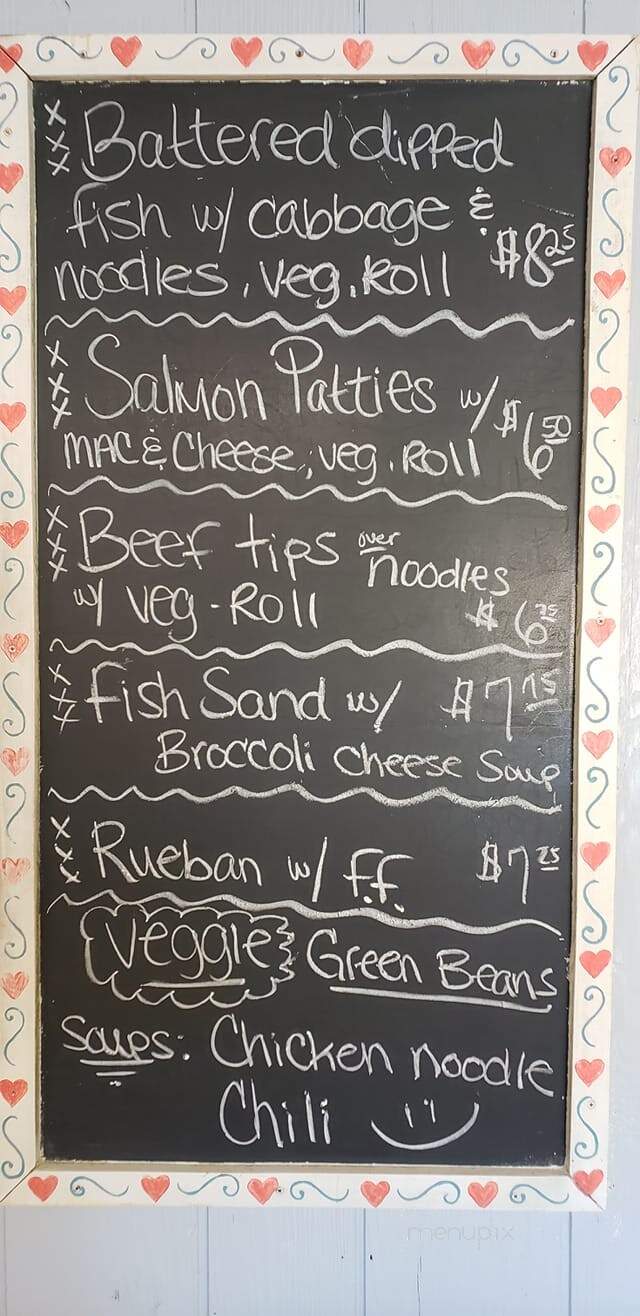 xxx Battered dipped
fish w/ cabbage &
noodles, veg. Roll $8.25
xxx Salmon Patties w/
MAC & Cheese, veg. Roll $6.50
xxx Beef tips over noodles
w/ veg - Roll $6.75
xxx fish Sand w/ $7.75
Broccoli cheese Soup
xxx Rueban w/ f.f. $7.25
Veggie Green Beans
Soups: Chicken noodle
Chili
menupix